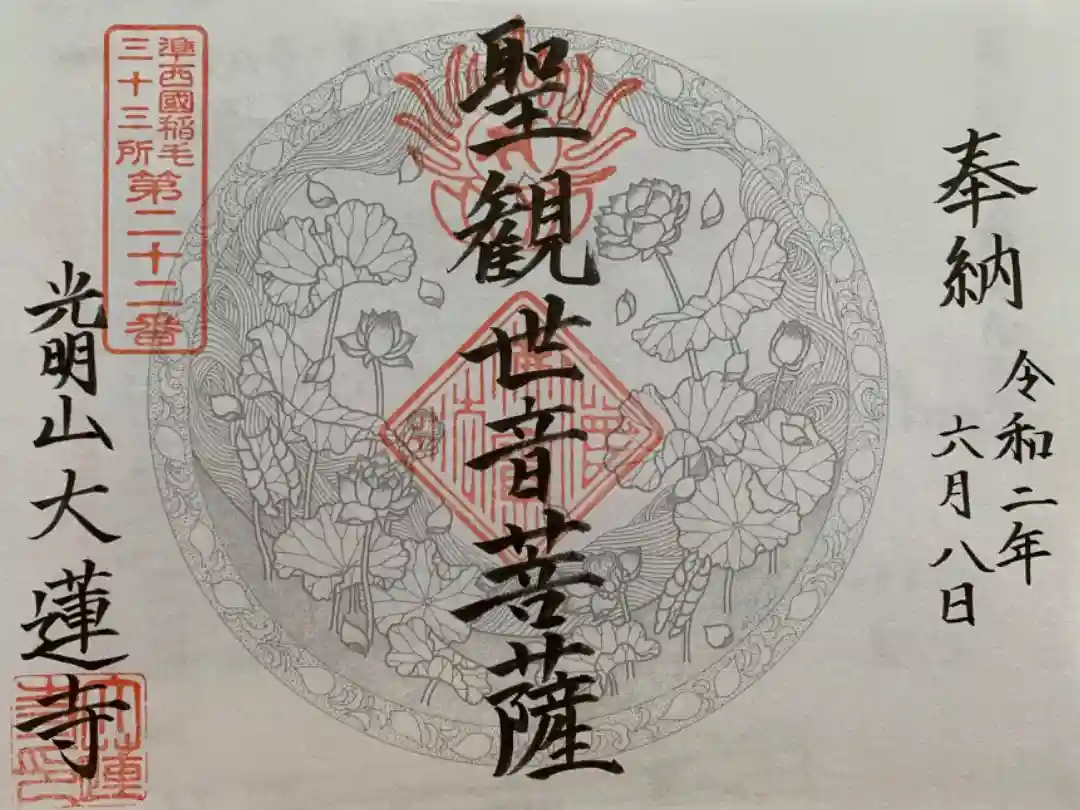 奉納
令和二年
六月八日
聖観世音菩薩
準西國稲毛
三十三所第二十二番
光明山大蓮寺